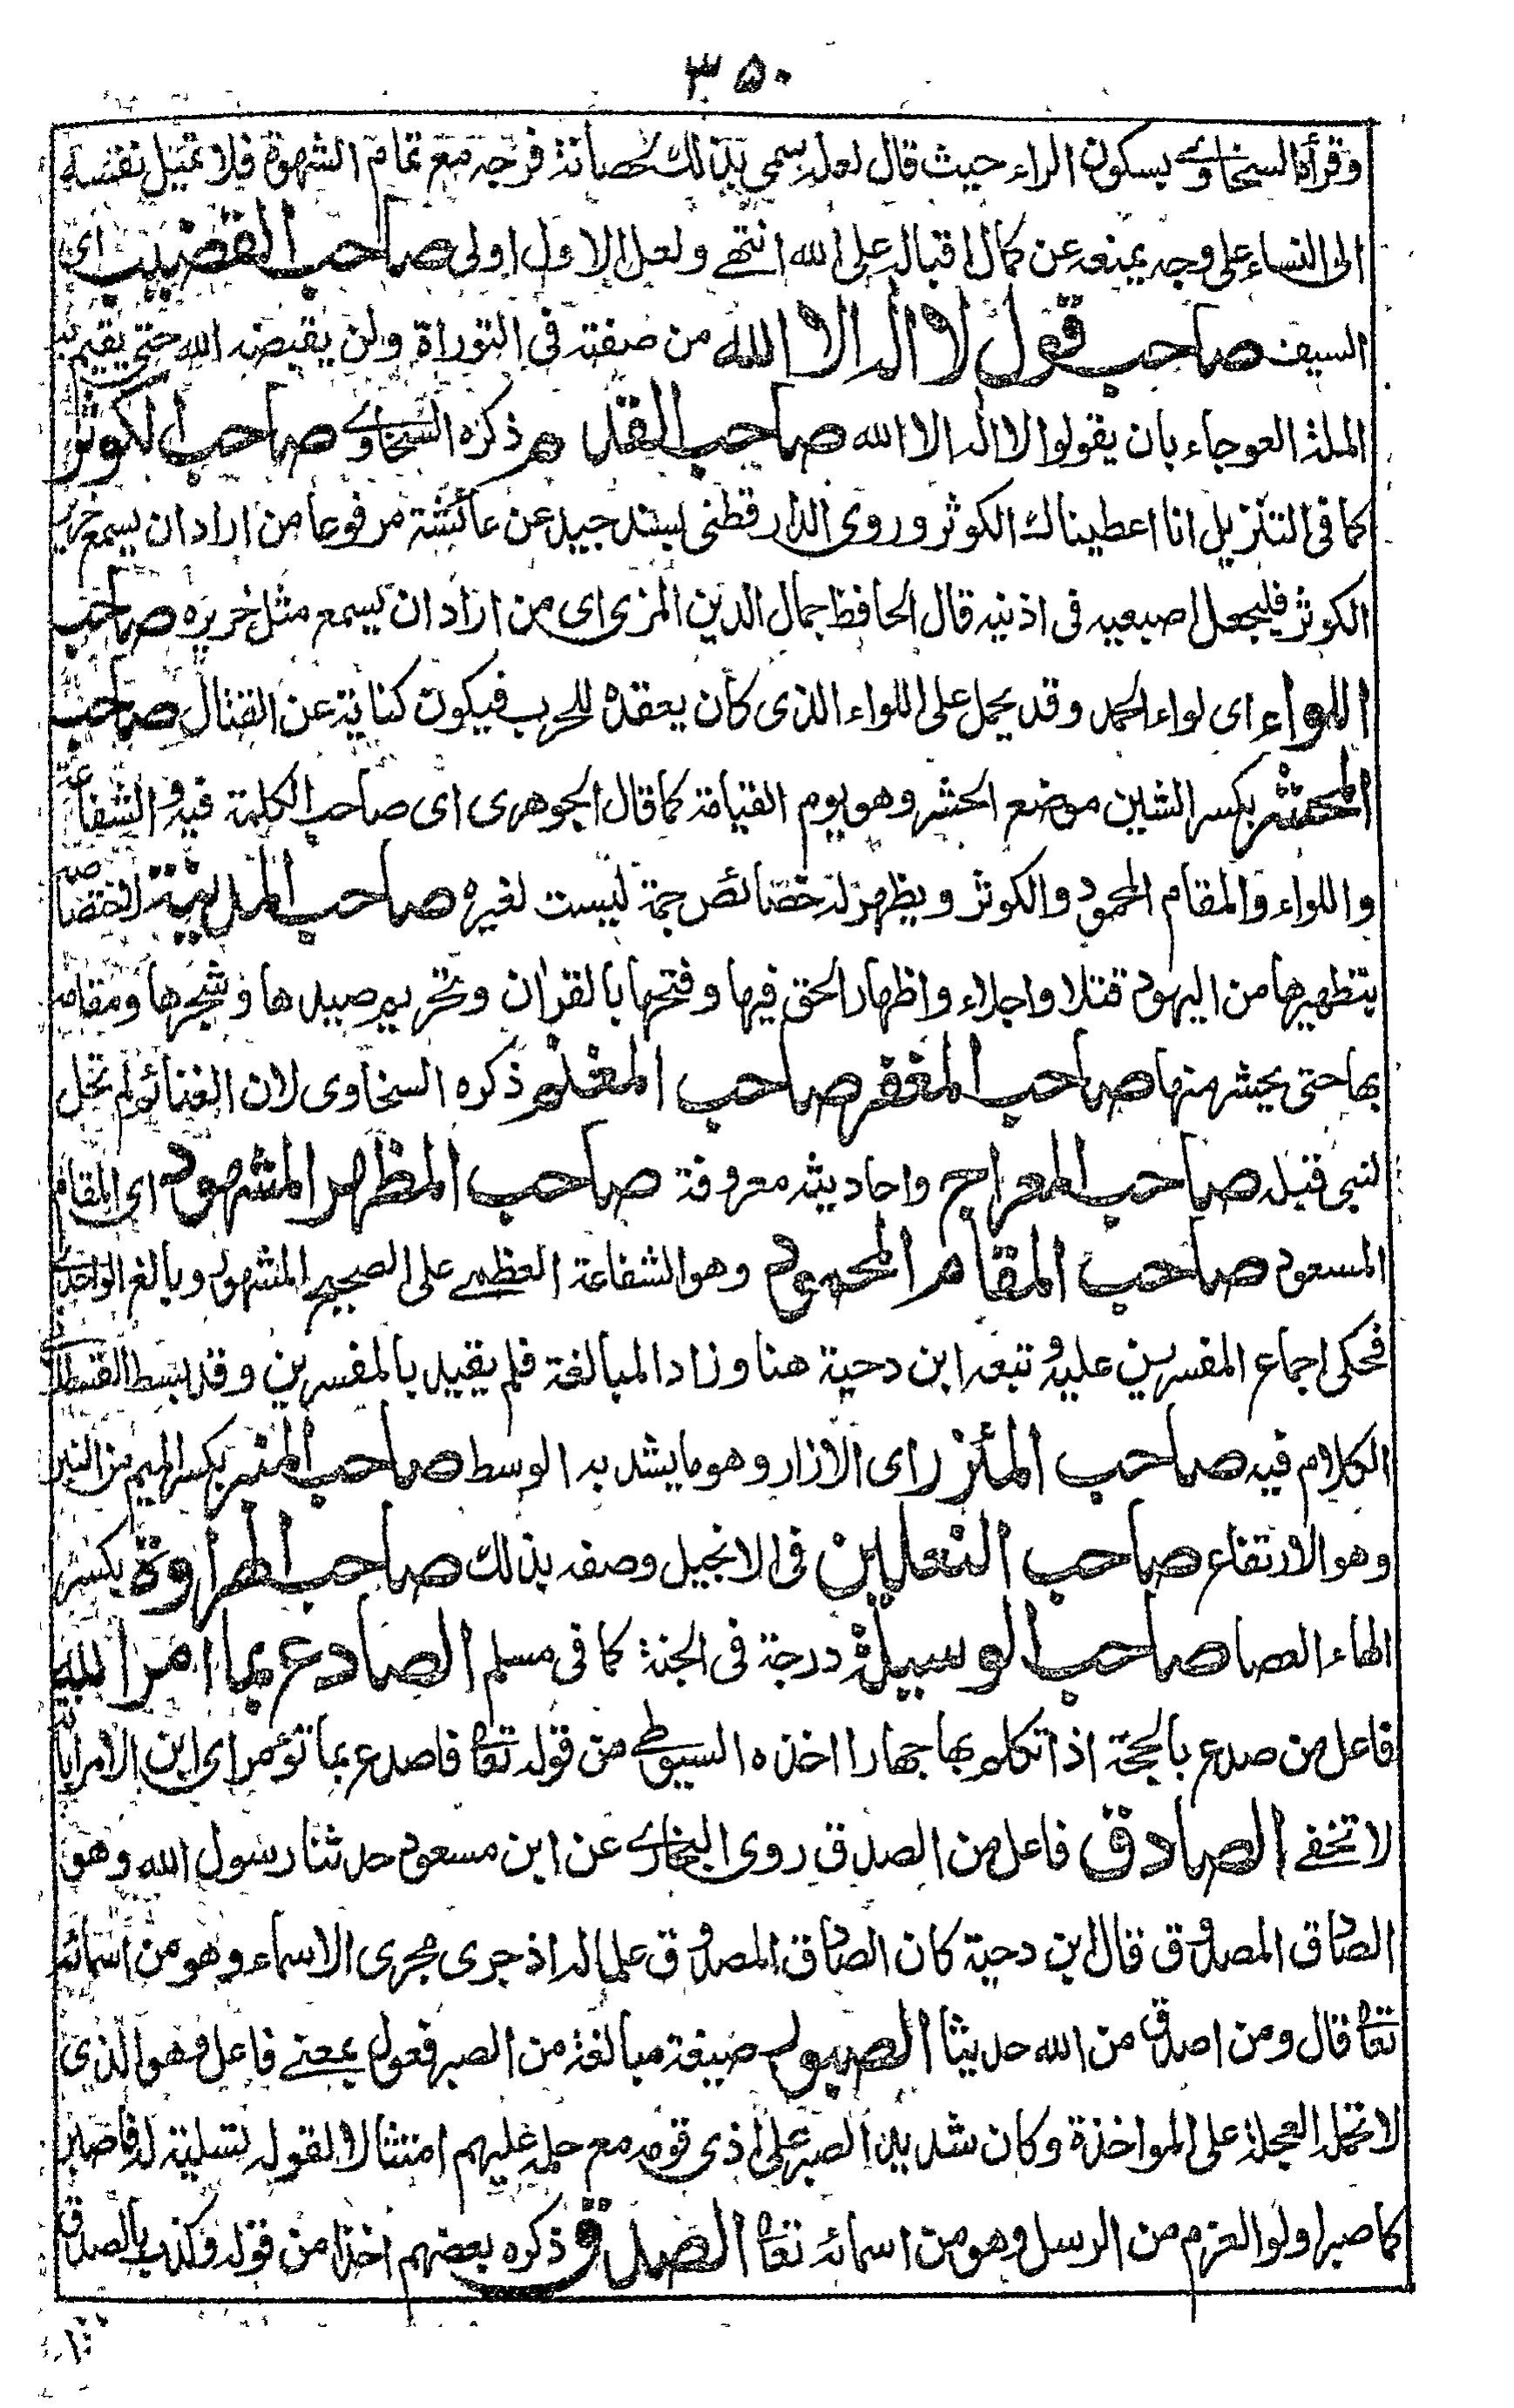 ٣٥٠
وقرأه السخاوى بسكون الراء حيث قال لعله سمى بذلك لحصانة فرجه مع تمام الشهوة فلا تميل نفسه
الى النساء على وجه يمنعه عن كمال اقباله على الله انتهى ولعل الاول اولى صاحب القضيب اى
السيف صاحب قول لا اله الا الله من صفته فى التوراة ولن يقبضه الله حتى يقيم به
الملة العوجاء بان يقولوا لا اله الا الله صاحب القدم ذكره السخاوى صاحب الكوثر
كما فى التنزيل انا اعطيناك الكوثر وروى الدارقطنى بسند جيد عن عائشة مرفوعا من اراد ان يسمع خرير
الكوثر فليجعل اصبعيه فى اذنيه قال الحافظ جمال الدين المزى اى من اراد ان يسمع مثل خريره صاحب
اللواء اى لواء الحمد وقد يحمل على اللواء الذى كان يعقده للحرب فيكون كناية عن القتال صاحب
المحشر بكسر الشين موضع الحشر وهو يوم القيامة كما قال الجوهرى اى صاحب الكلمة فيه والشفاعة
واللواء والمقام المحمود والكوثر ويظهر له خصائص جمة ليست لغيره صاحب المدينة لاختصاصه
بتطهيرها من اليهود قتلا واجلاء واظهار الحق فيها وفتحها بالقران وتحريم صيدها وشجرها ومقامه
بها حتى يحشر منها صاحب المغفر صاحب المغنم ذكره السخاوى لان الغنائم لم تحل
لنبى قبله صاحب المعراج واحاديثه معروفة صاحب المظهر المشهود اى المقام
المسعود صاحب المقام المحمود وهو الشفاعة العظمى على الصحيح المشهور وبالغ الواحدى
فحكى اجماع المفسرين عليه وتبعه ابن دحية هنا وزاد المبالغة فلم يقيد بالمفسرين وقد بسط القسطلانى
الكلام فيه صاحب المئزر اى الازار وهو ما يشد به الوسط صاحب المنبر بكسر الميم من النبر
وهو الارتفاع صاحب النعلين فى الانجيل وصفه بذلك صاحب الهراوة بكسر
الهاء العصا صاحب الوسيلة درجة فى الجنة كما فى مسلم الصادع بما امر الله
فاعل من صدع بالحجة اذا تكلم بها جهارا اخذه السيوطى من قوله تعا فاصدع بما تؤمر اى ابن الامر ابانة
لا تخفى الصادق فاعل من الصدق روى البخارى عن ابن مسعود حدثنا رسول الله وهو
الصادق المصدوق قال ابن دحية كان الصادق المصدوق علما له اذ جرى مجرى الاسماء وهو من اسمائه
تعا قال ومن اصدق من الله حديثا الصبور صيغة مبالغة من الصبر فعول بمعنى فاعل فهو الذى
لا تحمله العجلة على المواخذة وكان شديد الصبر على اذى قومه مع حلمه عليهم امتثالا لقوله تسلية له فاصبر
كما صبر اولوا العزم من الرسل وهو من اسمائه تعا الصدق ذكره بعضهم اخذا من قوله وكذب بالصدق